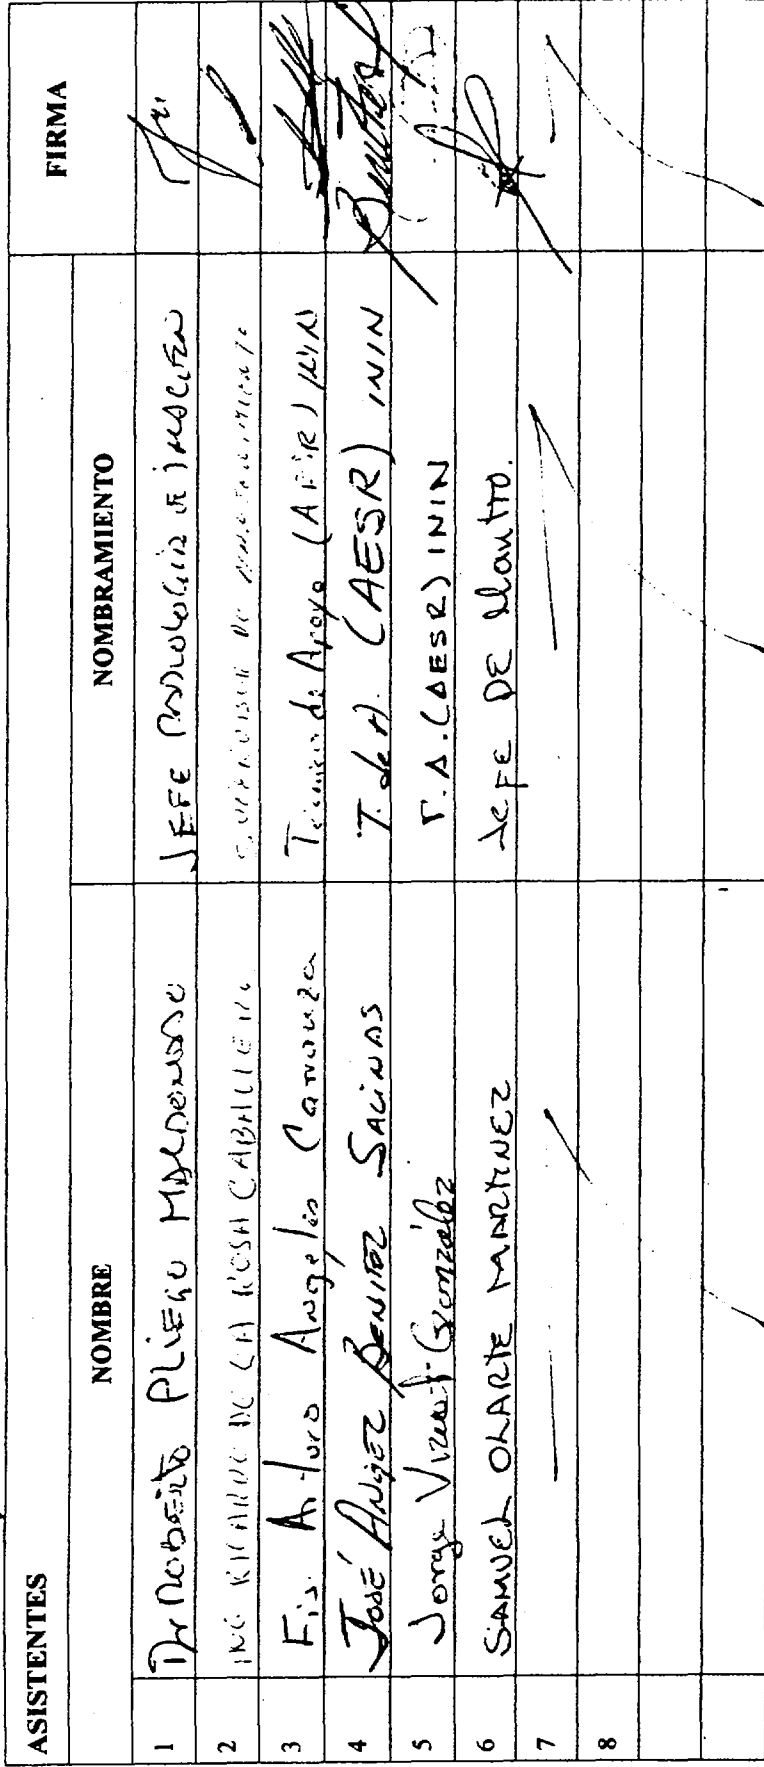 ASISTENTES
NOMBRE NOMBRAMIENTO FIRMA
1 Dr Roberto PLiEGO MALDONADO JEFE RADIOLOGIA E IMAGEN
2 ING RICARDO DE LA ROSA CABALLERO SUPERVISOR DE MANTENIMIENTO
3 Fis. Arturo Angeles Carranza Técnico de Apoyo (AESR) ININ
4 José ANgEL BENITEZ SALiNAS T. de A. (AESR) ININ
5 Jorge González T.A. (AESR) ININ
6 SAMUEL OLARTE MARTINEZ JEFE DE Mantto.
7
8